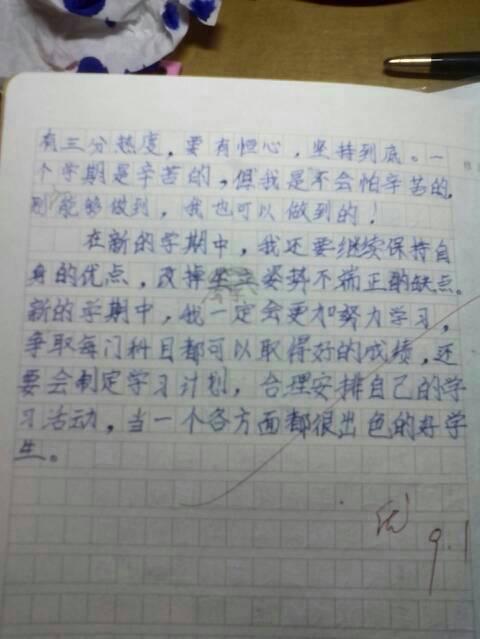 有三分热度，要有恒心，坚持到底。一
个学期是辛苦的，但我是不会怕辛苦的，
别能够做到，我也可以做到的！
在新的学期中，我还要继续保持自
身的优点，改掉坐立姿势不端正的缺点。
新的学期中，我一定会更加努力学习，
争取每门科目都可以取得好的成绩，还
要会制定学习计划，合理安排自己的学
习活动，当一个各方面都很出色的好学
生。
优
9.1